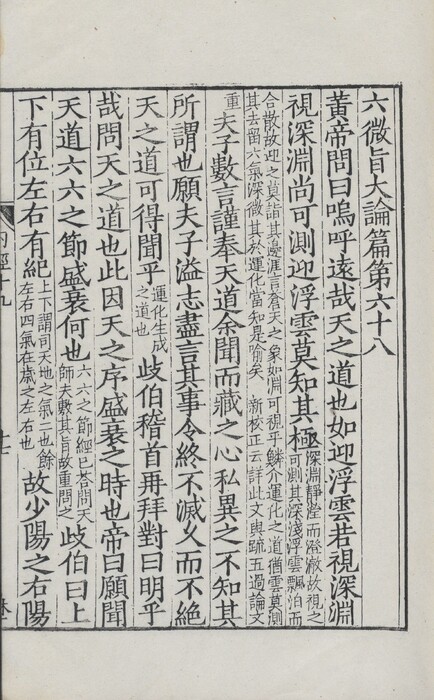 六微旨大論篇第六十八
黃帝問曰嗚呼遠哉天之道也如迎浮雲若視深淵
視深淵尚可測迎浮雲莫知其極深淵靜瀅而澄澈故視之可測其深淺浮雲飄泊而
合散故迎之莫詣其邊涯言蒼天之象如淵可視乎鱗介運化之道猶雲莫測
其去留六氣深微其於運化當知是喻矣 新校正云詳此文與疏五過論文
重夫子數言謹奉天道余聞而藏之心私異之不知其
所謂也願夫子溢志盡言其事令終不滅久而不絕
天之道可得聞乎運化生成之道也歧伯稽首再拜對曰明乎
哉問天之道也此因天之序盛衰之時也帝曰願聞
天道六六之節盛衰何也六六之節經已荅問天師未敷其旨故重問之歧伯曰上
下有位左右有紀上下謂司天地之氣二也餘左右四氣在歲之左右也故少陽之右陽